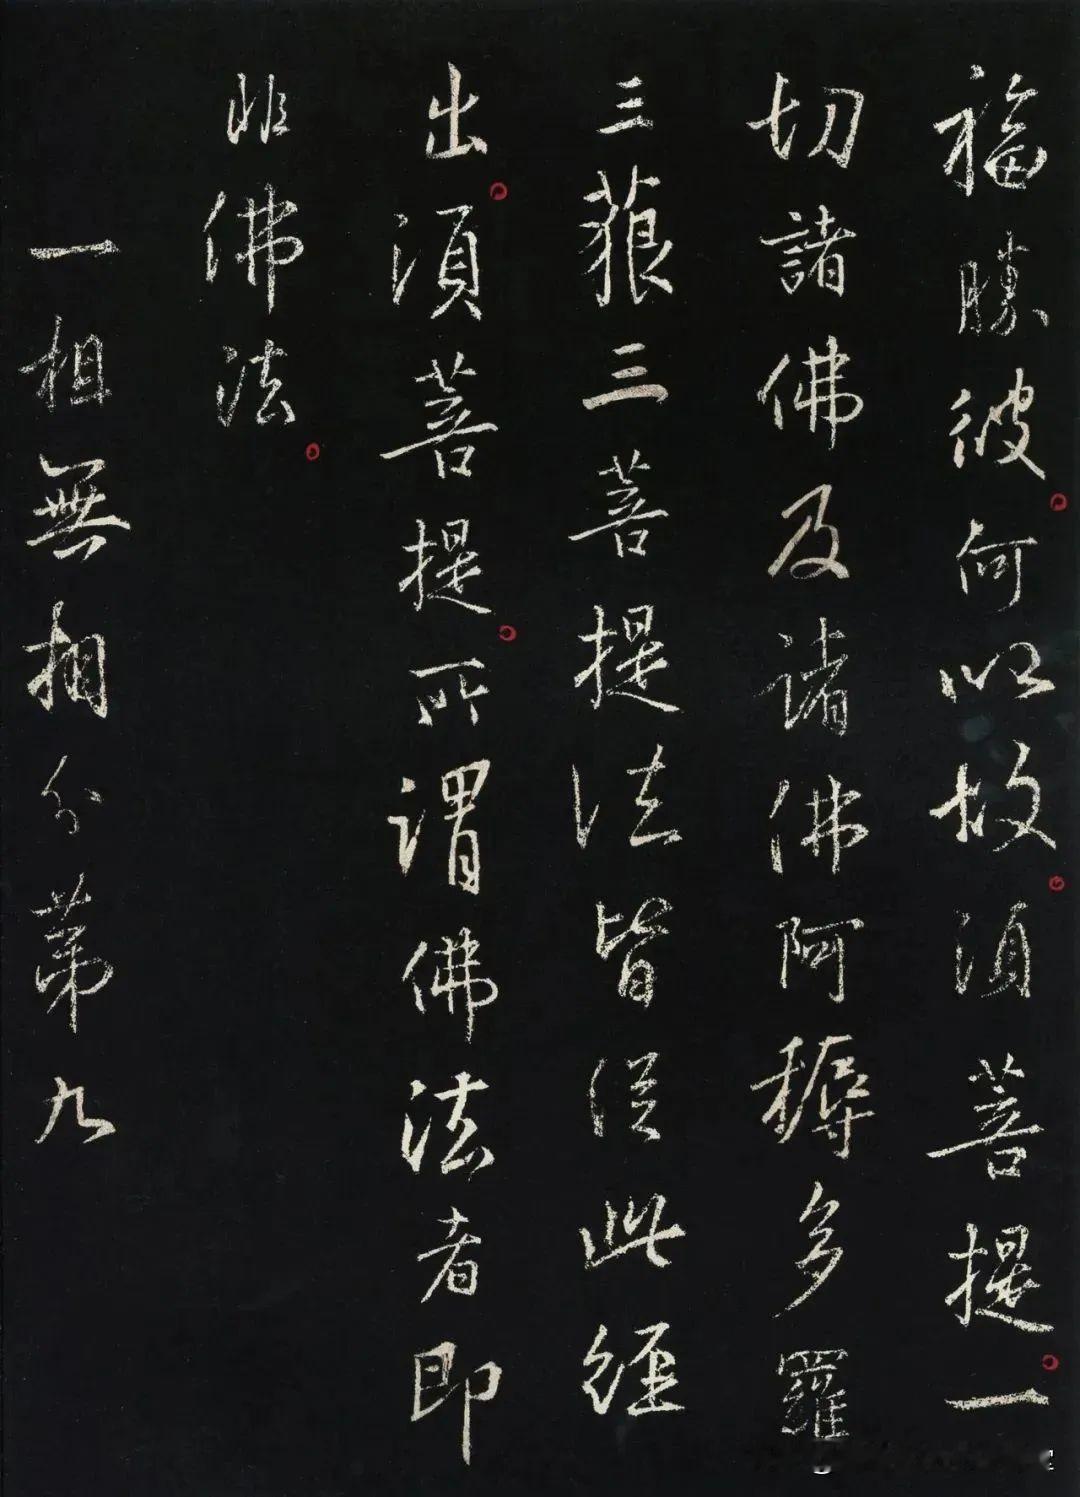 福勝彼何以故須菩提一
切諸佛及諸佛阿耨多羅
三藐三菩提法皆從此經
出須菩提所謂佛法者即
非佛法
一相無相分第九